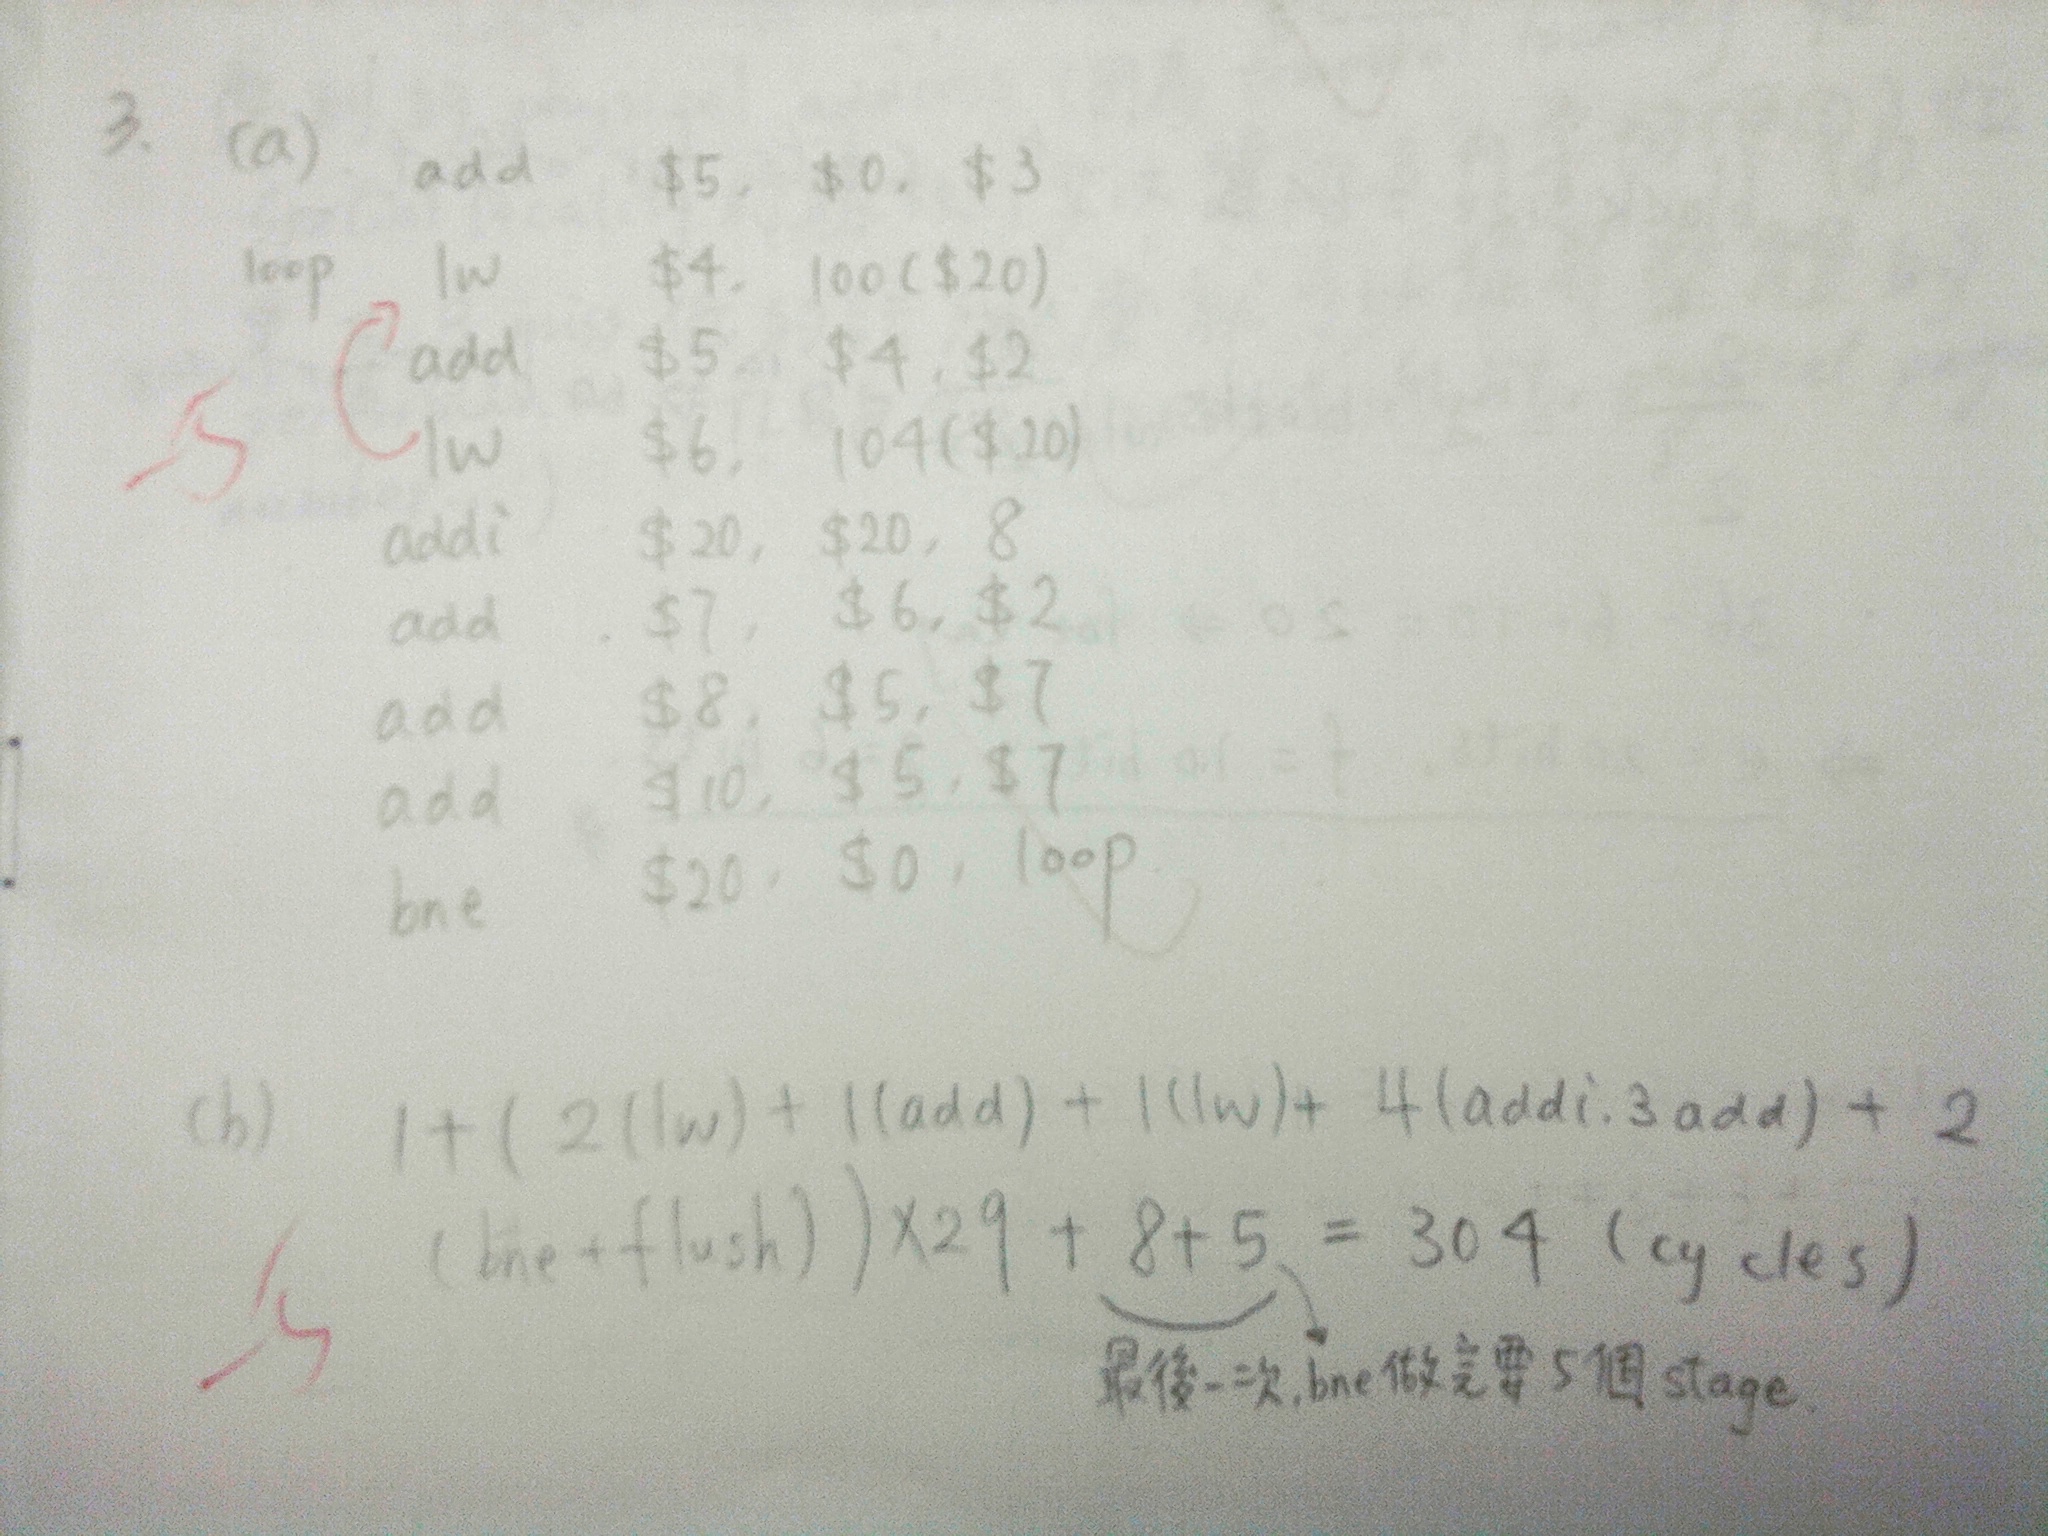 3. (a) add $5, $0, $3
loop lw $4, 100($20)
add $5, $4, $2
-5 lw $6, 104($20)
addi $20, $20, 8
add $7, $6, $2
add $8, $5, $7
add $10, $5, $7
bne $20, $0, loop
(b) 1+(2(lw)+1(add)+1(lw)+4(addi.3add)+2
(bne+flush))×29+8+5=304 (cycles)
-5
最後一次,bne做完要5個stage.